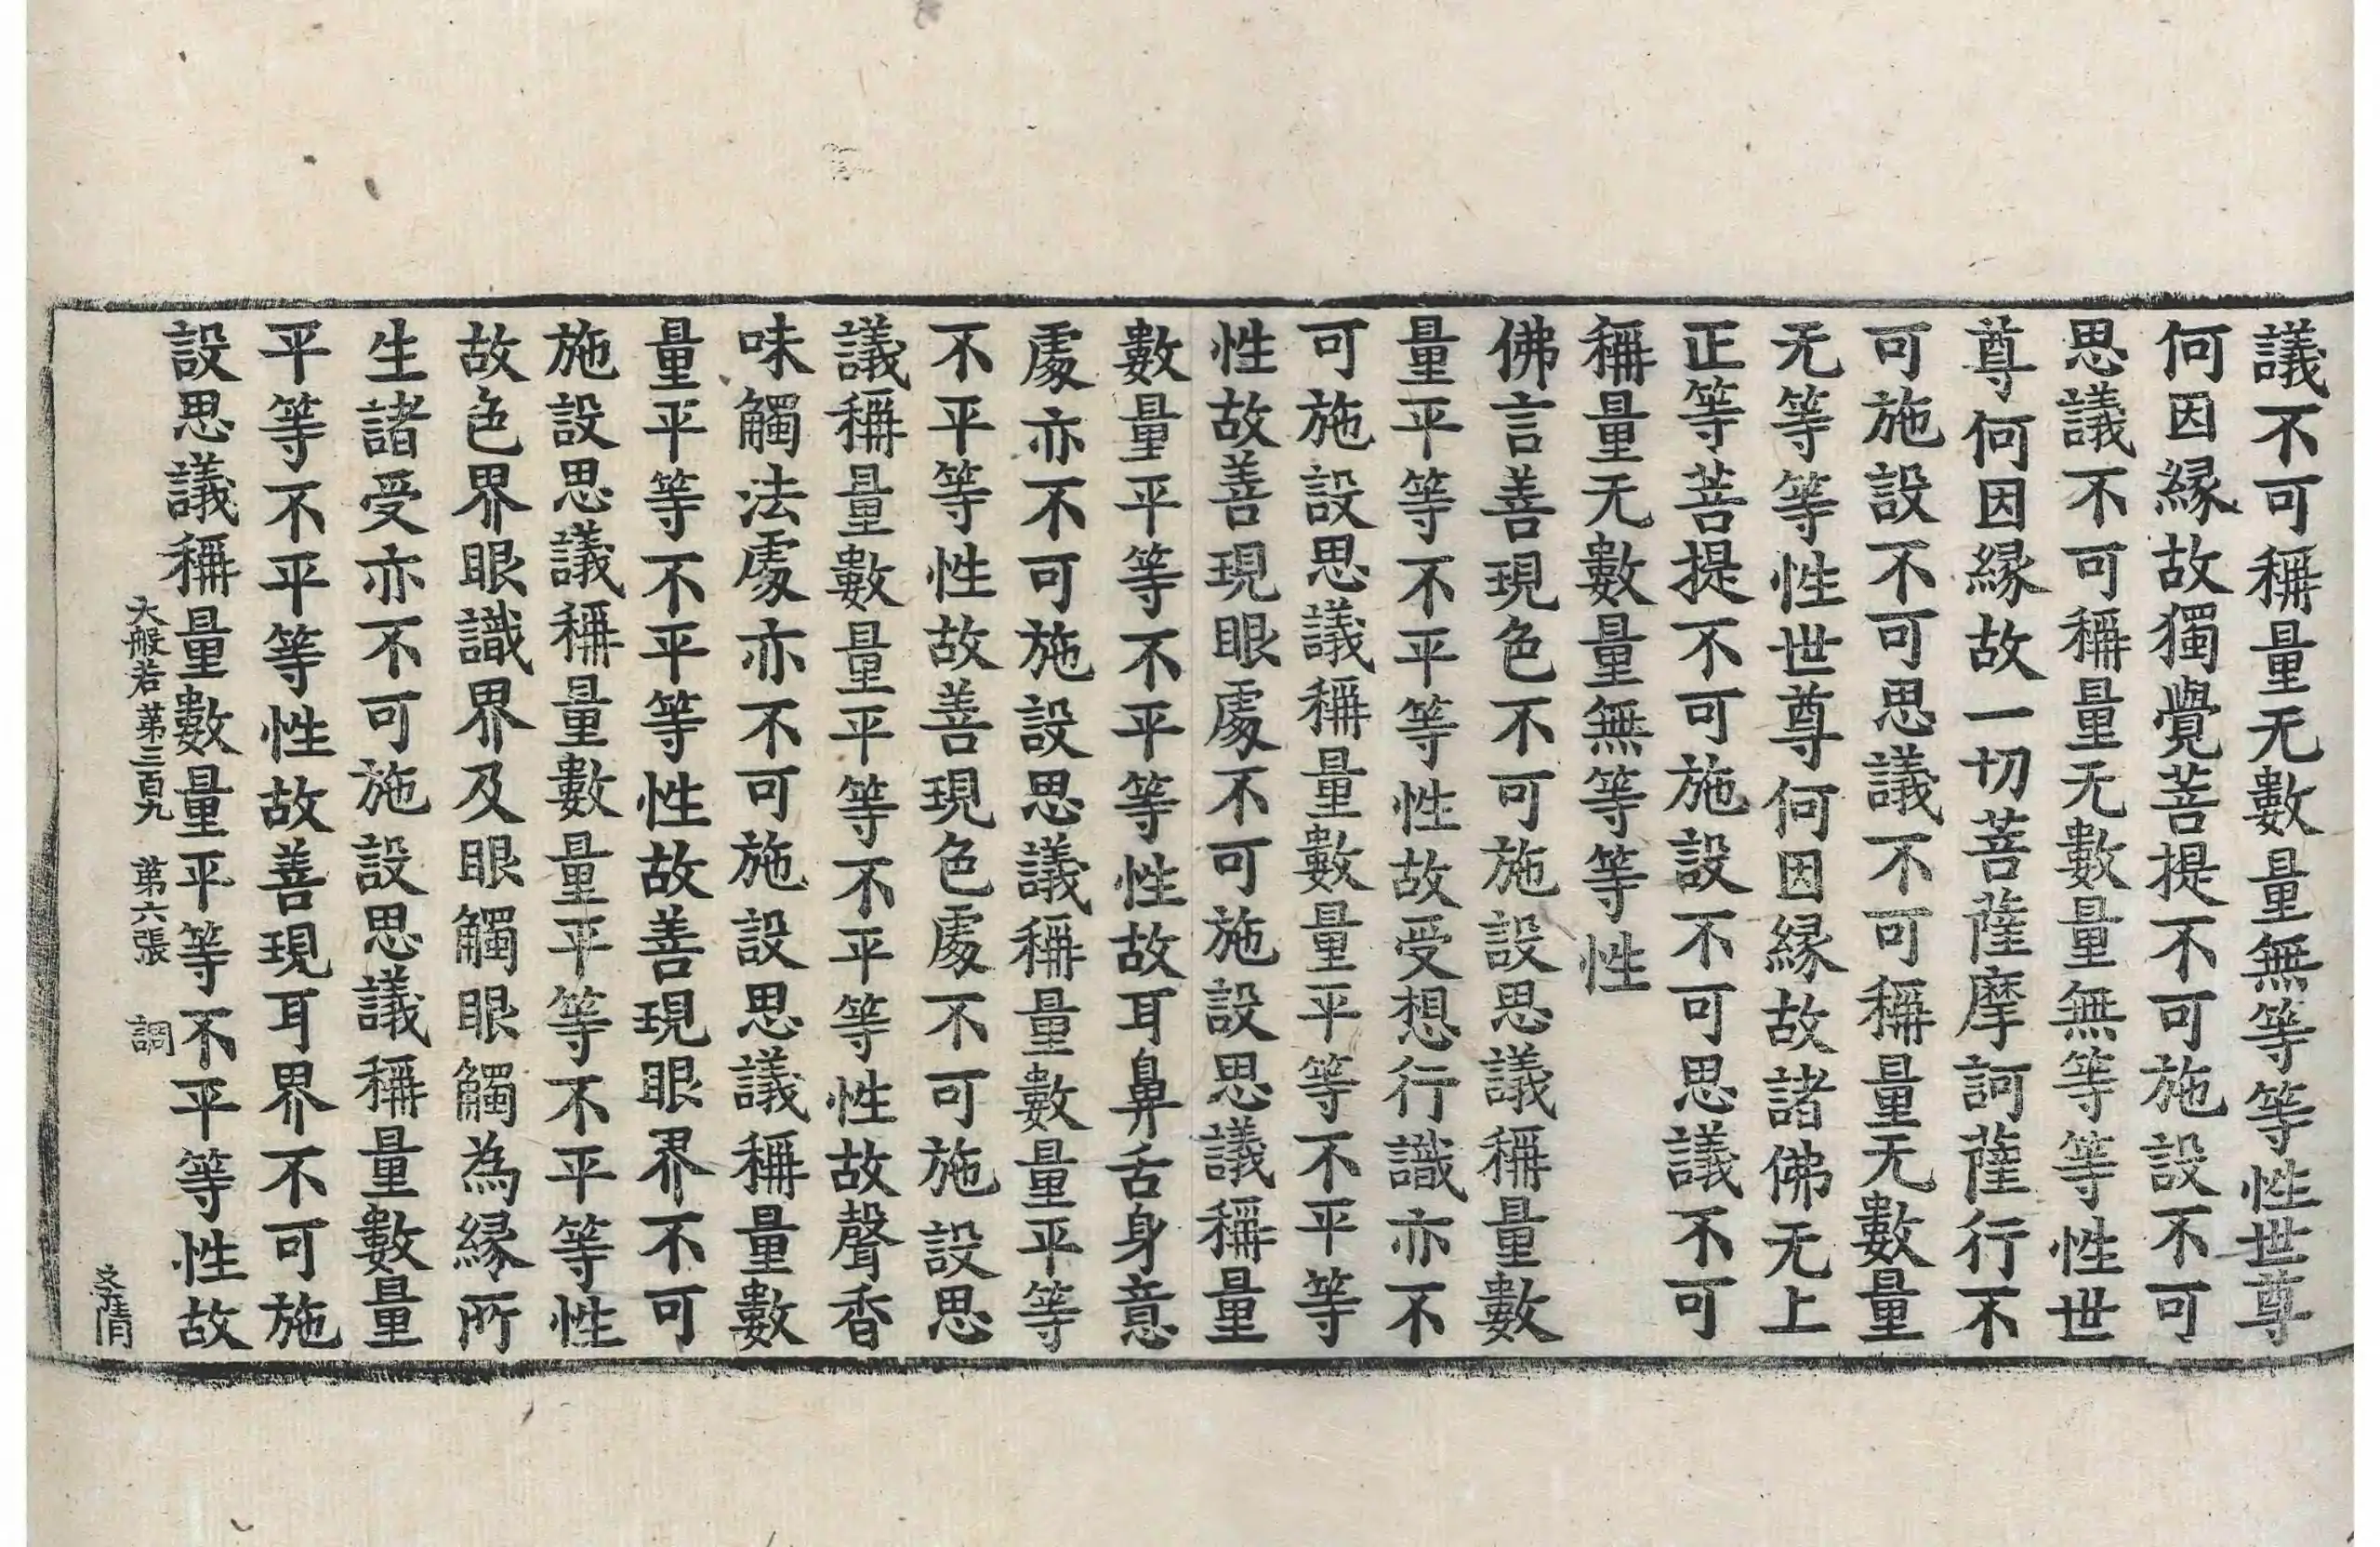 議不可稱量无數量無等等性世尊
何因緣故獨覺菩提不可施設不可
思議不可稱量无數量無等等性世
尊何因緣故一切菩薩摩訶薩行不
可施設不可思議不可稱量无數量
无等等性世尊何因緣故諸佛无上
正等菩提不可施設不可思議不可
稱量无數量無等等性
佛言善現色不可施設思議稱量數
量平等不平等性故受想行識亦不
可施設思議稱量數量平等不平等
性故善現眼處不可施設思議稱量
數量平等不平等性故耳鼻舌身意
處亦不可施設思議稱量數量平等
不平等性故善現色處不可施設思
議稱量數量平等不平等性故聲香
味觸法處亦不可施設思議稱量數
量平等不平等性故善現眼界不可
施設思議稱量數量平等不平等性
故色界眼識界及眼觸眼觸為緣所
生諸受亦不可施設思議稱量數量
平等不平等性故善現耳界不可施
設思議稱量數量平等不平等性故
大般若 第三百九 第六張 調